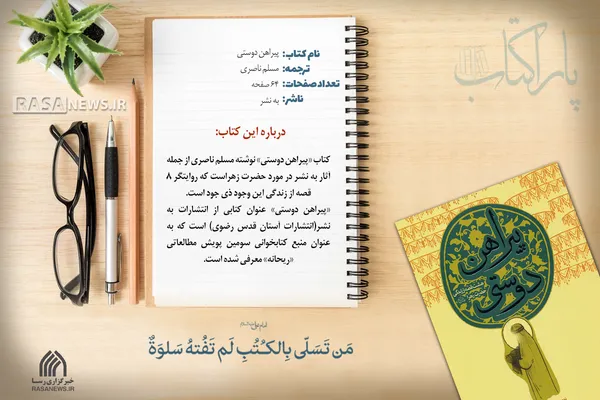 نام کتاب: پیراهن دوستی
ترجمه: مسلم ناصری
تعداد صفحات: ۶۴ صفحه
ناشر: به نشر
درباره این کتاب:
کتاب «پیراهن دوستی» نوشته مسلم ناصری از جمله
آثار به نشر در مورد حضرت زهراست که روایتگر ۸
قصه از زندگی این وجود ذی جود است.
«پیراهن دوستی» عنوان کتابی از انتشارات به
نشر(انتشارات آستان قدس رضوی) است که به
عنوان منبع کتابخوانی سومین پویش مطالعاتی
«ریحانه» معرفی شده است.
مَن تَسَلّی بِالکُتُبِ لَم تَفُتهُ سَلوَةٌ
پاراکتاب
RASANEWS.IR
پیراهن
دوستی
خبرگزاری رسا
RASANEWS.IR